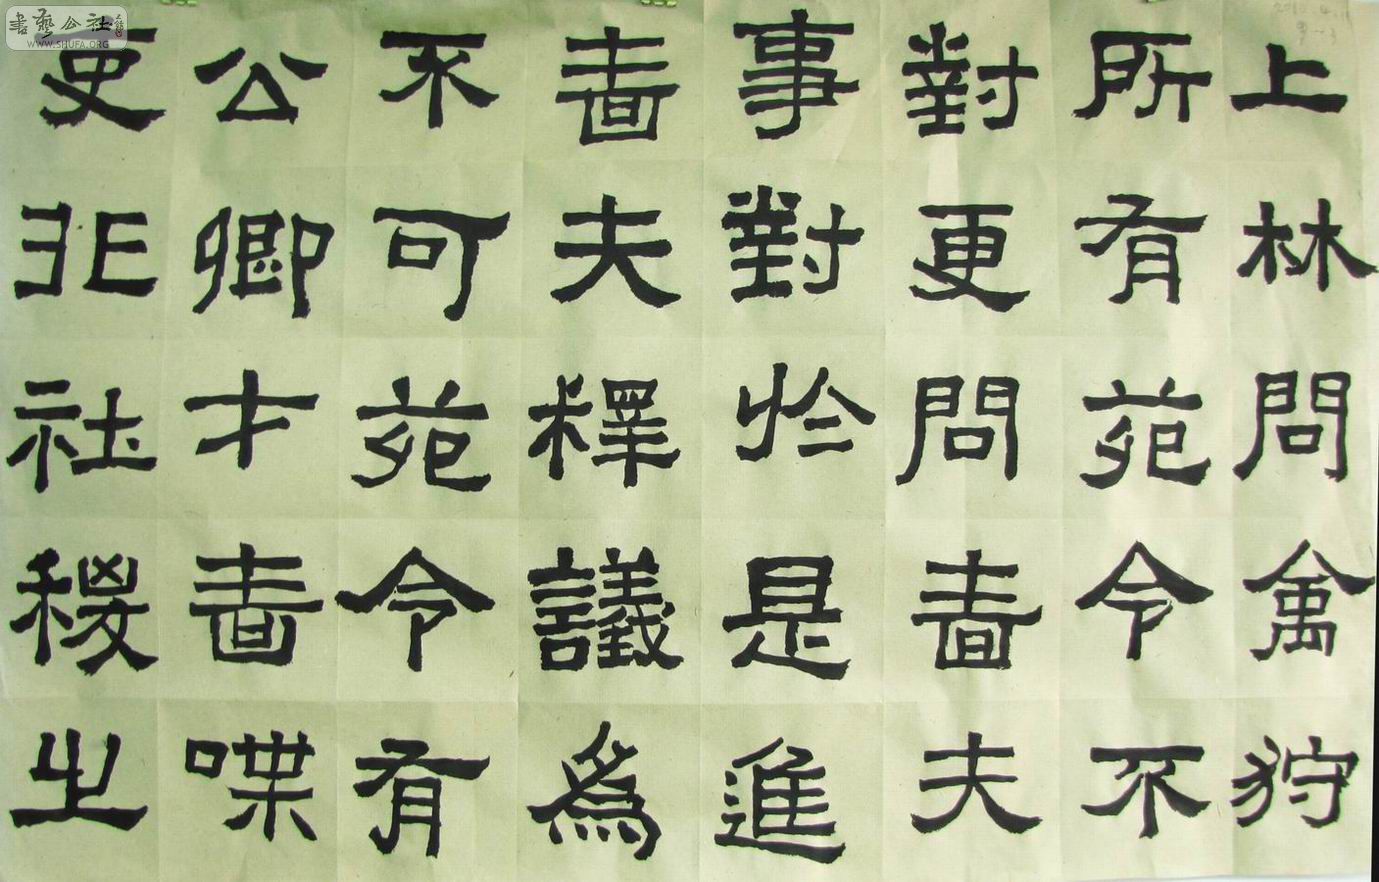 上林問禽狩
所有苑令不
對更問嗇夫
事對於是進
嗇夫釋議爲
不可苑令有
公卿才嗇喋
吏非社稷之
書藝公社
WWW.SHUFA.ORG